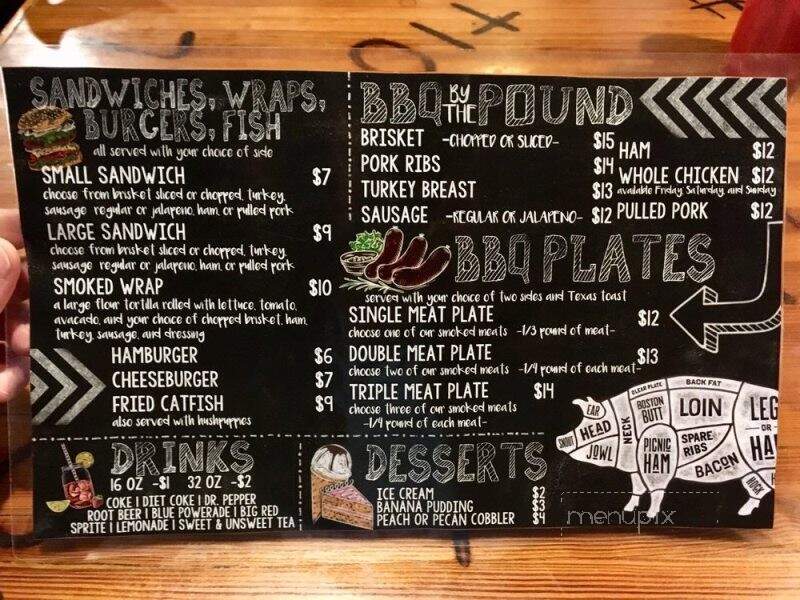 SANDWICHES, WRAPS,
BURGERS, FISH
all served with your choice of side
SMALL SANDWICH $7
choose from brisket sliced or chopped, turkey,
sausage regular or jalapeno, ham, or pulled pork
LARGE SANDWICH $9
choose from brisket sliced or chopped, turkey,
sausage regular or jalapeno, ham, or pulled pork
SMOKED WRAP $10
a large flour tortilla rolled with lettuce, tomato,
avacado, and your choice of chopped brisket, ham,
turkey, sausage, and dressing
HAMBURGER $6
CHEESEBURGER $7
FRIED CATFISH $9
also served with hushpuppies
DRINKS
16 OZ -$1 32 OZ -$2
COKE | DIET COKE | DR. PEPPER
ROOT BEER | BLUE POWERADE | BIG RED
SPRITE | LEMONADE | SWEET & UNSWEET TEA
BBQ BY THE POUND
BRISKET -CHOPPED OR SLICED- $15
PORK RIBS $14
TURKEY BREAST $13
SAUSAGE -REGULAR OR JALAPENO- $12
HAM $12
WHOLE CHICKEN $12
available Friday, Saturday, and Sunday
PULLED PORK $12
BBQ PLATES
served with your choice of two sides and Texas toast
SINGLE MEAT PLATE $12
choose one of our smoked meats -1/3 pound of meat-
DOUBLE MEAT PLATE $13
choose two of our smoked meats -1/4 pound of each meat-
TRIPLE MEAT PLATE $14
choose three of our smoked meats
-1/4 pound of each meat-
DESSERTS
ICE CREAM $2
BANANA PUDDING $3
PEACH OR PECAN COBBLER $4
EAR
SNOUT
HEAD
JOWL
NECK
CLEAR PLATE
BACK FAT
BOSTON
BUTT
LOIN
PICNIC
HAM
SPARE
RIBS
BACON
LEG
OR
HA
HOCK
menupix